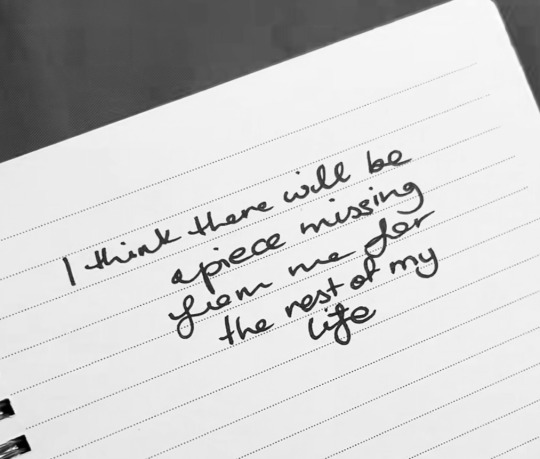 I think there will be
a piece missing
from me for
the rest of my
life